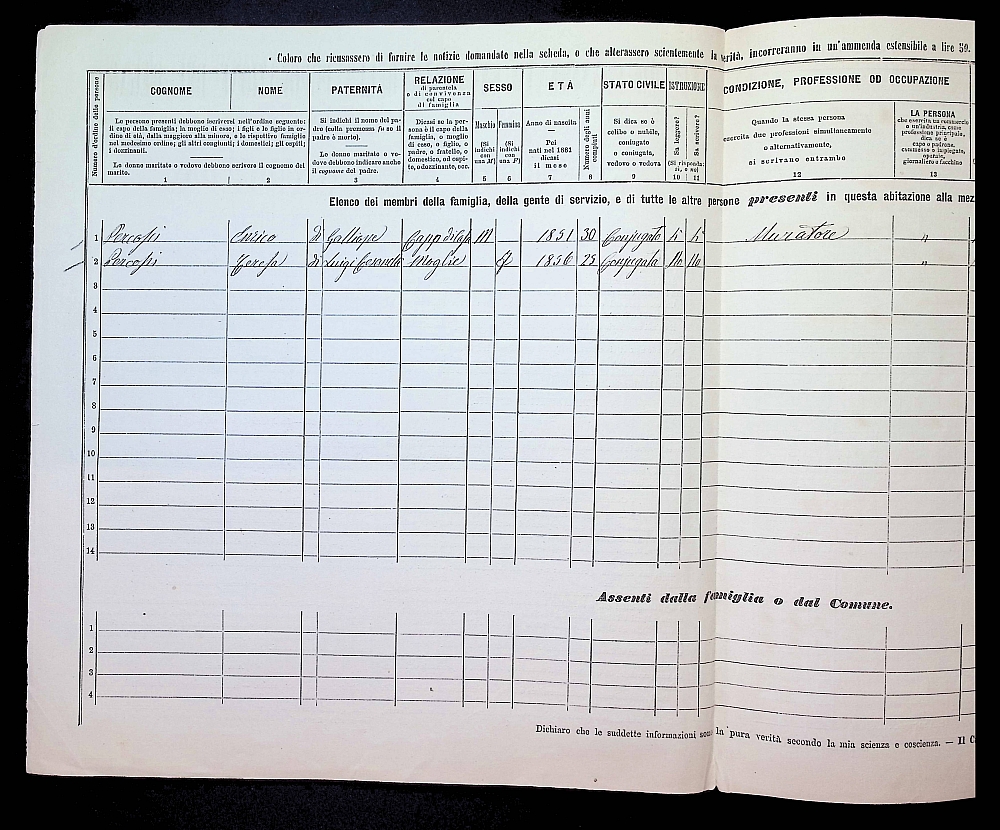 • Coloro che ricusassero di fornire le notizie domandate nella scheda, o che alterassero scientemente la verità, incorreranno in un'ammenda estensibile a lire 50.
Numero d'ordine delle persone
COGNOME
NOME
PATERNITÀ
RELAZIONE
di parentela
o di convivenza
col capo
di famiglia
SESSO
ETÀ
STATO CIVILE
ISTRUZIONE
CONDIZIONE, PROFESSIONE OD OCCUPAZIONE
Le persone presenti debbono iscriversi nell'ordine seguente:
il capo della famiglia; la moglie di esso; i figli e le figlie in or-
dine di età, dalla maggiore alla minore, e le rispettive famiglie
nel medesimo ordine; gli altri congiunti; i domestici; gli ospiti;
i dozzinanti.
Le donne maritate o vedove debbono scrivere il cognome del
marito.
1
2
Si indichi il nome del pa-
dre (colla promessa fu se il
padre è morto).
Le donne maritate o ve-
dove debbono indicare anche
il cognome del padre.
3
Dicasi se la per-
sona è il capo della
famiglia, o moglie
di esso, o figlio, o
padre, o fratello, o
domestico, od ospi-
te, o dozzinante, ecc.
4
Maschio
(Si
indichi
con
una M)
5
Femmina
(Si
indichi
con
una F)
6
Anno di nascita
Pei
nati nel 1881
dicasi
il mese
7
Numero degli anni
compiuti
8
Si dica se è
celibe o nubile,
coniugato
o coniugata,
vedovo o vedova
9
Sa leggere?
Sa scrivere?
(Si risponda:
sì, o no)
10
11
Quando la stessa persona
esercita due professioni simultaneamente
o alternativamente,
si scrivano entrambe
12
LA PERSONA
che esercita un commercio
o un'industria, come
professione principale,
dica se è
capo o padrone,
commesso o impiegato,
operaio,
giornaliero o facchino
13
Elenco dei membri della famiglia, della gente di servizio, e di tutte le altre persone presenti in questa abitazione alla mez
1 Percossi Enrico di Capo di Casa M 1851 30 Conjugato si si Muratore "
2 Percossi Teresa di Luigi Moglie f 1856 25 Conjugata No No "
3
4
5
6
7
8
9
10
11
12
13
14
Assenti dalla famiglia o dal Comune.
1
2
3
4
Dichiaro che le suddette informazioni sono la pura verità secondo la mia scienza e coscienza. — Il C